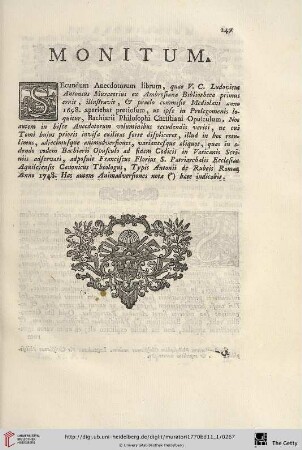 247
MONITUM.
SEcundum Anecdotorum librum, quae V. C. Ludovicus
Antonius Muratorius ex Ambrosiana Bibliotheca primus
eruit, illustravit, & praelo commisit Mediolani anno
1698. aperiebat pretiosum, ut ipse in Prolegomenis loquitur,
Bachiarii Philosophi Christiani Opusculum. Nos
autem in hisce Anecdotorum voluminibus recudendis veriti, ne cui
Tomi hujus prioris invisa caeteras forte displiceret, illud in hac retulimus,
adjecimusque animadversiones, variantesque aliquot, quas in
adornando eodem Bachiarii Opusculo ad fidem Codicis in Vaticanis Scriniis
adservati, adposuit Franciscus Florius S. Patriarchalis Ecclesiae
Aquilejensis Canonicus Theologus, Typis Antonii de Rubeis Romae
Anno 1748. Has autem Animadversiones nota (*) haec indicabit.
http://digi.ub.uni-heidelberg.de/diglit/muratori1770bd11_1/0267
© Universitätsbibliothek Heidelberg
The Getty